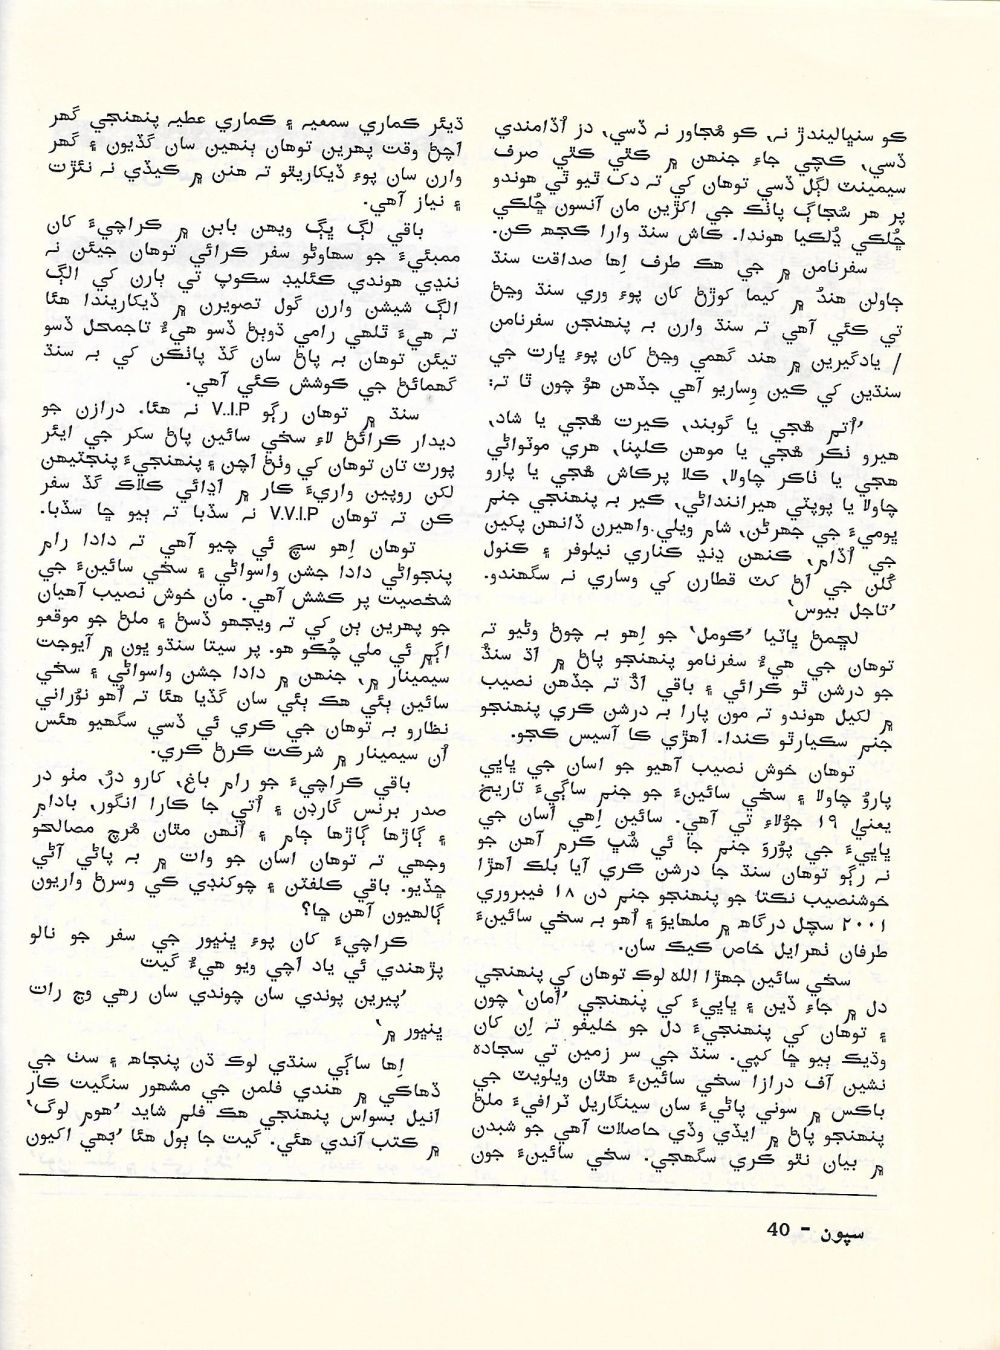 ڪو سنڀاليندڙ نہ، ڪو مُجاور نہ ڏسي، دز اُڏامندي
ڏسي، ڪچي جاءِ جنهن ۾ ڪٿي ڪٿي صرف
سيمينٽ لڳل ڏسي توهان کي تہ دک ٿيو ئي هوندو
پر هر سُڄاڳ پاٺڪ جي اکڙين مان آنسون ڇُلڪي
ڇُلڪي ڍُلڪيا هوندا. ڪاش سنڌ وارا ڪجهہ ڪن.
سفرنامن ۾ جي هڪ طرف اِها صداقت سنڌ
ڄاولن هندُ ۾ ڪيما کوڙڻ کان پوءِ وري سنڌ وڃڻ
تي ڪئي آهي تہ سنڌ وارن بہ پنهنجن سفرنامن
/ يادگيرين ۾ هند گهمي وڃڻ کان پوءِ ڀارت جي
سنڌين کي ڪين وِساريو آهي جڏهن هوُ چون ٿا تہ:
’اُتم هُجي يا گوبند، ڪيرت هُجي يا شاد،
هيرو ٺڪر هُجي يا موهن ڪلپنا، هري موٽواڻي
هجي يا ٺاڪر چاولا، ڪلا پرڪاش هُجي يا پارو
چاولا يا پوپٽي هيراننداڻي، ڪير بہ پنهنجي جنم
ڀوميءَ جي جهرڻن، شام ويلي. واهيرن ڏانهن پکين
جي اُڏام، ڪنهن ڍنڍ ڪناري نيلوفر ۽ ڪنول
گُلن جي اڻ کٽ قطارن کي وساري نہ سگهندو.
’تاجل بيوس‘
لڇمڻ ڀاٽيا ’ڪومل‘ جو اِهو بہ چوڻ وڻيو تہ
توهان جي هيءُ سفرنامو پنهنجو پاڻ ۾ اڌ سنڌُ
جو درشن ٿو ڪرائي ۽ باقي اڌُ تہ جڏهن نصيب
۾ لکيل هوندو تہ مون پارا بہ درشن ڪري پنهنجو
جنم سڪيارٿو ڪندا. اهڙي ڪا آسيس ڪجو.
توهان خوش نصيب آهيو جو اسان جي ڀاڀي
پاروُ چاولا ۽ سخي سائينءَ جو جنم ساڳيءَ تاريخ
يعنيٰ ١٩ جوُلاءِ تي آهي. سائين اِهي اسان جي
ڀاڀيءَ جي پوُروَ جنم جا ئي شُڀ ڪرم آهن جو
نہ رڳو توهان سنڌ جا درشن ڪري آيا بلڪ اهڙا
خوشنصيب نڪتا جو پنهنجو جنم دن ١٨ فيبروري
٢٠٠١ سچل درگاهہ ۾ ملهايوَ ۽ اُهو بہ سخي سائينءَ
طرفان ٺهرايل خاص ڪيڪ سان.
سخي سائين جهڙا الله لوڪ توهان کي پنهنجي
دل ۾ جاءِ ڏين ۽ ڀاڀيءَ کي پنهنجي ’امان‘ چون
۽ توهان کي پنهنجيءَ دل جو خليفو تہ اِن کان
وڌيڪ ٻيو ڇا کپي. سنڌ جي سر زمين تي سجاده
نشين آف درازا سخي سائينءَ هٿان ويلويٽ جي
باڪس ۾ سوني پاڻيءَ سان سينگاريل ٽرافيءَ ملڻ
پنهنجو پاڻ ۾ ايڏي وڏي حاصلات آهي جو شبدن
۾ بيان نٿو ڪري سگهجي. سخي سائينءَ جون
ڏيئر ڪماري سمعيہ ۽ ڪماري عطيہ پنهنجي گهر
اچڻ وقت پهرين توهان ٻنهين سان گڏيون ۽ گهر
وارن سان پوءِ ڏيکاريٿو تہ هنن ۾ ڪيڏي نہ نئڙت
۽ نياز آهي.
باقي لڳ ڀڳ ويهن بابن ۾ ڪراچيءَ کان
ممبئيءَ جو سهاوڻو سفر ڪرائي توهان جيئن نہ
ننڍي هوندي ڪئليڊ سڪوپ تي ٻارن کي الڳ
الڳ شيشن وارن گول تصويرن ۾ ڏيکاريندا هئا
تہ هيءَ ٿلهي رامي ڌوٻڻ ڏسو هيءُ تاجمحل ڏسو
تيئن توهان بہ پاڻ سان گڏ پاٺڪن کي بہ سنڌ
گهمائڻ جي ڪوشش ڪئي آهي.
سنڌ ۾ توهان رڳو V..I.P نہ هئا. درازن جو
ديدار ڪرائڻ لاءِ سخي سائين پاڻ سکر جي ايئر
پورٽ تان توهان کي وٺڻ اچن ۽ پنهنجيءَ پنجٽيهن
لکن روپين واريءَ ڪار ۾ اڍائي ڪلاڪ گڏ سفر
ڪن تہ توهان V.V.I.P نہ سڏبا تہ ٻيو ڇا سڏبا.
توهان اِهو سچ ئي چيو آهي تہ دادا رام
پنجواڻي دادا جشن واسواڻي ۽ سخي سائينءَ جي
شخصيت پر ڪشش آهي. مان خوش نصيب آهيان
جو پهرين ٻن کي تہ ويجهو ڏسڻ ۽ ملڻ جو موقعو
اڳم ئي ملي چُڪو هو. پر سيتا سنڌو ڀون ۾ آيوجت
سيمينار ۾، جنهن ۾ دادا جشن واسواڻي ۽ سخي
سائين ٻئي هڪ ٻئي سان گڏيا هئا تہ اُهو نوُراني
نظارو بہ توهان جي ڪري ئي ڏسي سگهيو هئس
اُن سيمينار ۾ شرڪت ڪرڻ ڪري.
باقي ڪراچيءَ جو رام باغ، کارو در، مٺو در
صدر برنس گارڊن ۽ اُتي جا ڪارا انگور، بادام
۽ ڳاڙها ڳاڙها ڄام ۽ اُنهن مٿان مُرچ مصالحو
وجهي تہ توهان اسان جو وات ۾ بہ پاڻي آڻي
ڇڏيو. باقي ڪلفٽن ۽ چوکنڊي ڪي وسرڻ واريون
ڳالهيون آهن ڇا؟
ڪراچيءَ کان پوءِ ڀنڀور جي سفر جو نالو
پڙهندي ئي ياد اچي ويو هيءُ گيت
’پيرين پوندي سان چوندي سان رهي وڃ رات
ڀنڀور ۾‘
اِها ساڳي سنڌي لوڪ ڌن پنجاهہ ۽ سٺ جي
ڏهاڪي ۾ هندي فلمن جي مشهور سنگيت ڪار
انيل بسواس پنهنجي هڪ فلم شايد ’هوم لوگ‘
۾ ڪتب آندي هئي. گيت جا ٻول هئا ’بهي اکيون
سپون - 40